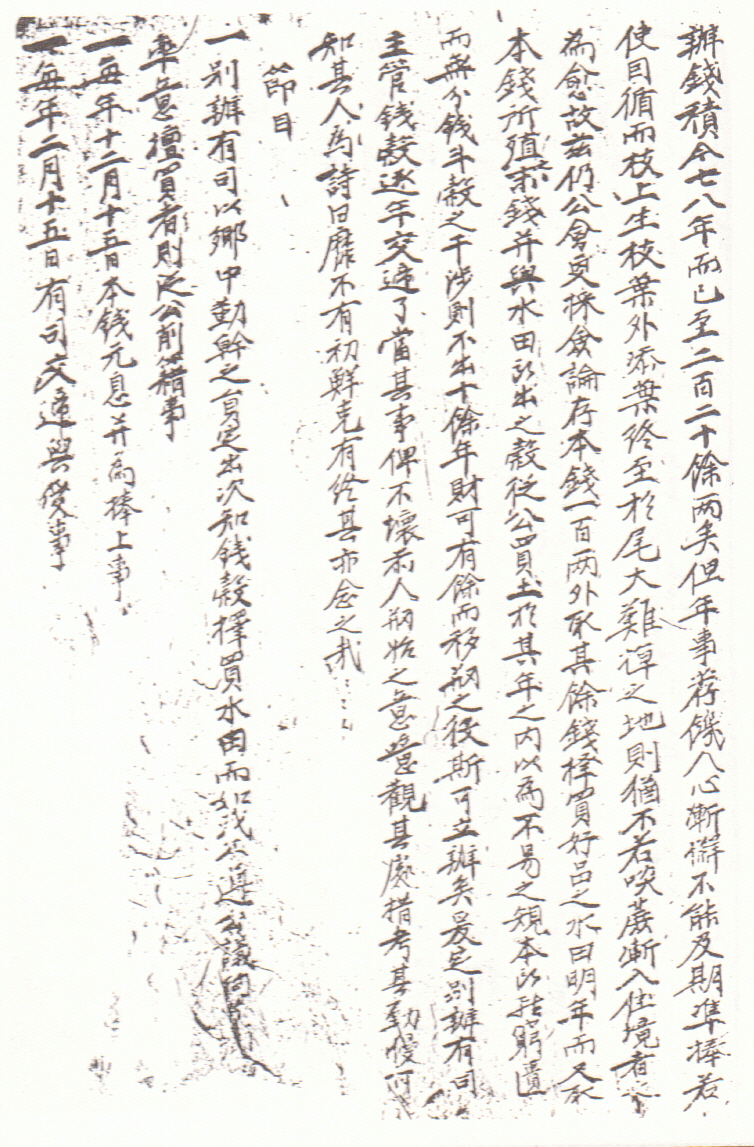 辦錢積今七八年而已至二百二十餘兩矣但年事荐饑人心漸澥不能及期準捧若
使因循而枝上生枝葉外添葉終至於尾大難掉之地則猶不若啖蔗漸入佳境者之
為愈故玆仍公會更採僉論存本錢一百兩外取其餘錢擇買好品之水田明年而又取
本錢所殖零錢并與水田所出之穀從公買土於其年之內以為不易之規本所祛窮匱
而無分錢斗穀之干涉則不出十餘年財可有餘而移刱之役斯可立辦矣爰定別辦有司
主管錢穀逐年交遞了當其事俾不壞前人刱始之意噫觀其處措考其勤慢可
知其人焉詩曰靡不有初鮮克有終其亦念之哉
節目
一別辦有司以鄉中勤幹之員定出次知錢穀擇買水田而如或不遵公議
率意擅買者則從公前籍事
一每年十二月十五日本錢元息并為捧上事
一每年二月十五日有司交遞與受事